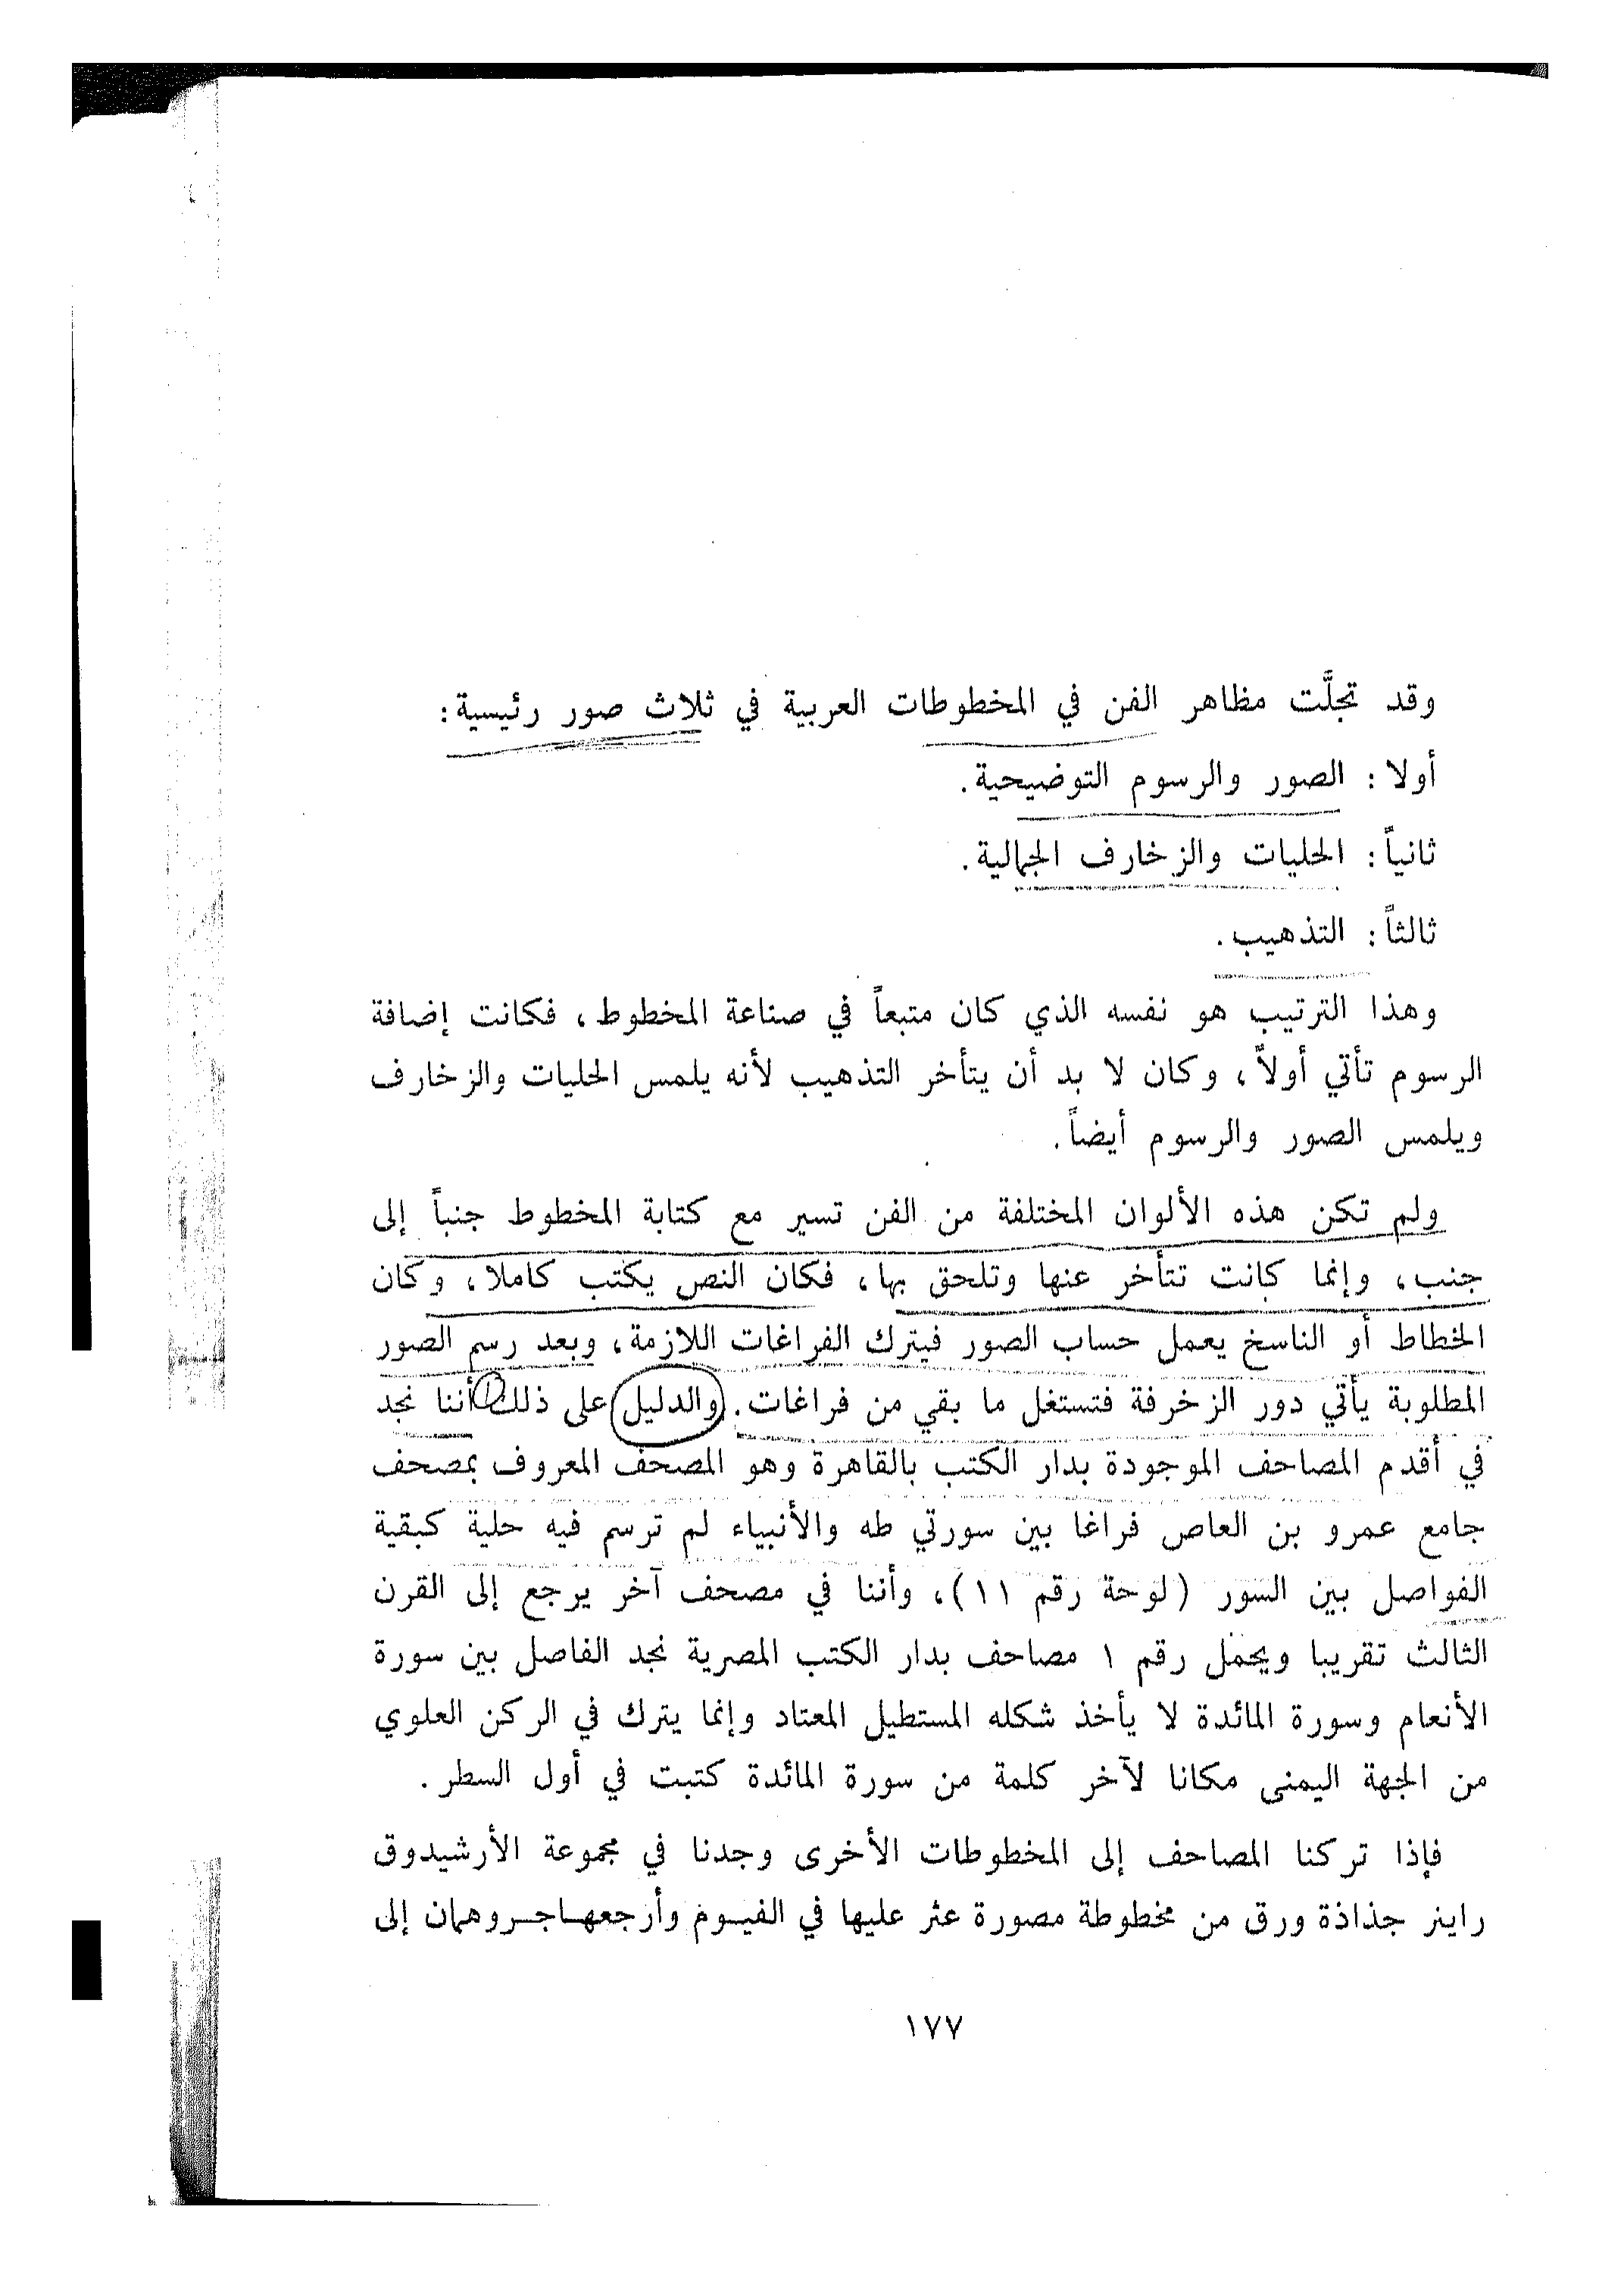 وقد تجلَّت مظاهر الفن في المخطوطات العربية في ثلاث صور رئيسية:
أولا: الصور والرسوم التوضيحية.
ثانياً: الحليات والزخارف الجمالية.
ثالثاً: التذهيب.
وهذا الترتيب هو نفسه الذي كان متبعاً في صناعة المخطوط، فكانت إضافة
الرسوم تأتي أولاً، وكان لا بد أن يتأخر التذهيب لأنه يلمس الحليات والزخارف
ويلمس الصور والرسوم أيضاً.
ولم تكن هذه الألوان المختلفة من الفن تسير مع كتابة المخطوط جنباً إلى
جنب، وإنما كانت تتأخر عنها وتلحق بها، فكان النص يكتب كاملا، وكان
الخطاط أو الناسخ يعمل حساب الصور فيترك الفراغات اللازمة، وبعد رسم الصور
المطلوبة يأتي دور الزخرفة فتستغل ما بقي من فراغات. والدليل على ذلك أننا نجد
في أقدم المصاحف الموجودة بدار الكتب بالقاهرة وهو المصحف المعروف بمصحف
جامع عمرو بن العاص فراغا بين سورتي طه والأنبياء لم ترسم فيه حلية كبقية
الفواصل بين السور (لوحة رقم ١١)، وأننا في مصحف آخر يرجع إلى القرن
الثالث تقريبا ويحمل رقم ١ مصاحف بدار الكتب المصرية نجد الفاصل بين سورة
الأنعام وسورة المائدة لا يأخذ شكله المستطيل المعتاد وإنما يترك في الركن العلوي
من الجهة اليمنى مكانا لآخر كلمة من سورة المائدة كتبت في أول السطر.
فإذا تركنا المصاحف إلى المخطوطات الأخرى وجدنا في مجموعة الأرشيدوق
راينر جذاذة ورق من مخطوطة مصورة عثر عليها في الفيوم وأرجعها جروهمان إلى
١٧٧